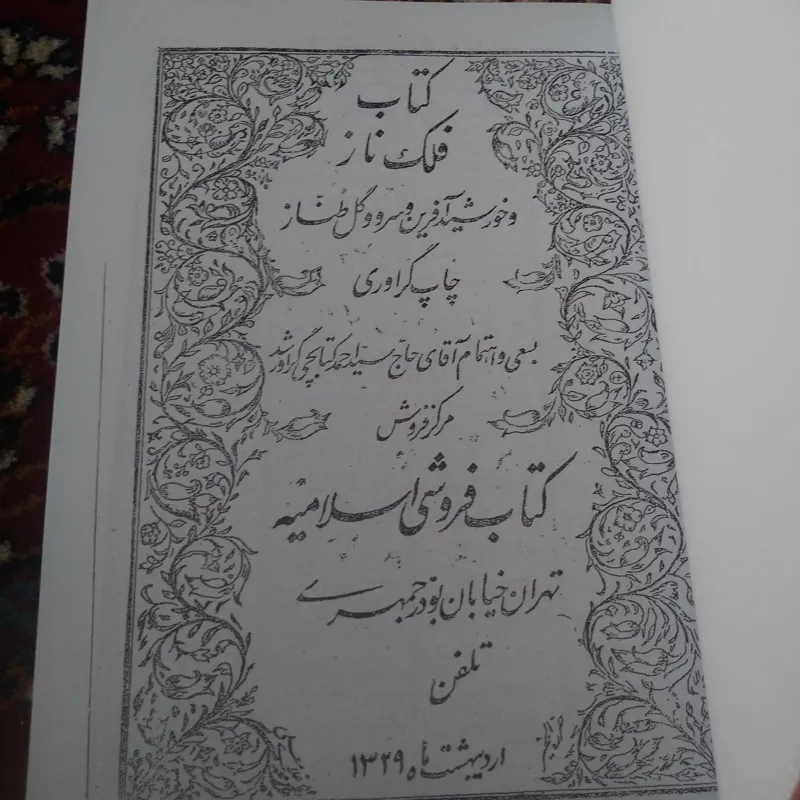 کتاب
فلک ناز
و خورشید آفرین و سرو و گل طنّاز
چاپ گراوری
بسعی و اهتمام آقای حاج سید احمد کتابچی گراور شد
مرکز فروش
کتاب فروشی اسلامیه
تهران خیابان بوذرجمهری
تلفن
اردیبهشت ماه ۱۳۲۹